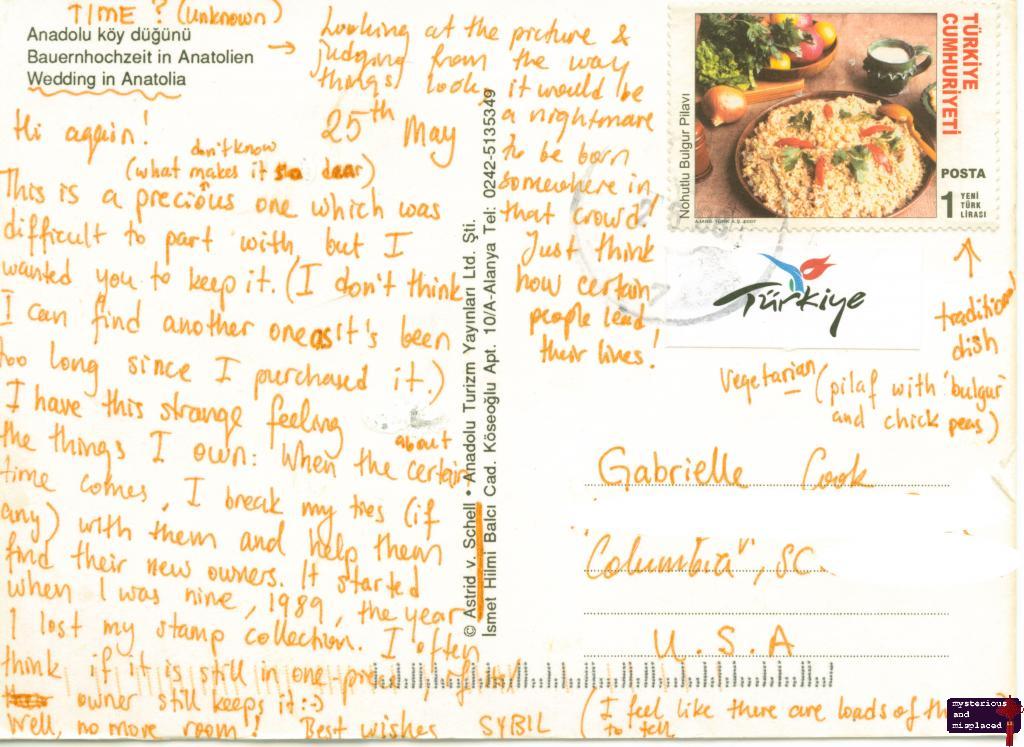 TIME ? (unknown)
Anadolu köy düğünü
Bauernhochzeit in Anatolien
Wedding in Anatolia
→ Looking at the picture &
judging from the way
things look, it would be
a nightmare
to be born
somewhere in
that crowd!
Just think
how certain
people lead
their lives!
Hi again!
25th May
don't know
(what makes it so dear)
This is a precious one which was
difficult to part with, but I
wanted you to keep it. (I don't think
I can find another one as it's been
too long since I purchased it.)
I have this strange feeling
about
the things I own: When the certain
time comes, I break my ties (if
any) with them and help them
find their new owners. It started
when I was nine, 1989, the year
I lost my stamp collection. I often
think if it is still in one piece, if
owner still keeps it :-)
Well, no more room! Best wishes SYBIL
(I feel like there are loads of
to tell
© Astrid v. Schell • Anadolu Turizm Yayınları Ltd. Şti.
İsmet Hilmi Balcı Cad. Köseoğlu Apt. 10/A-Alanya Tel: 0242-5135349
Nohutlu Bulgur Pilavı
TÜRKİYE
CUMHURİYETİ
POSTA
1 YENİ
TÜRK
LİRASI
Türkiye
traditional
dish
Vegetarian (pilaf with 'bulgur'
and chick peas)
Gabrielle Cook
"Columbia", SC
U.S.A
mysterious
and
misplaced